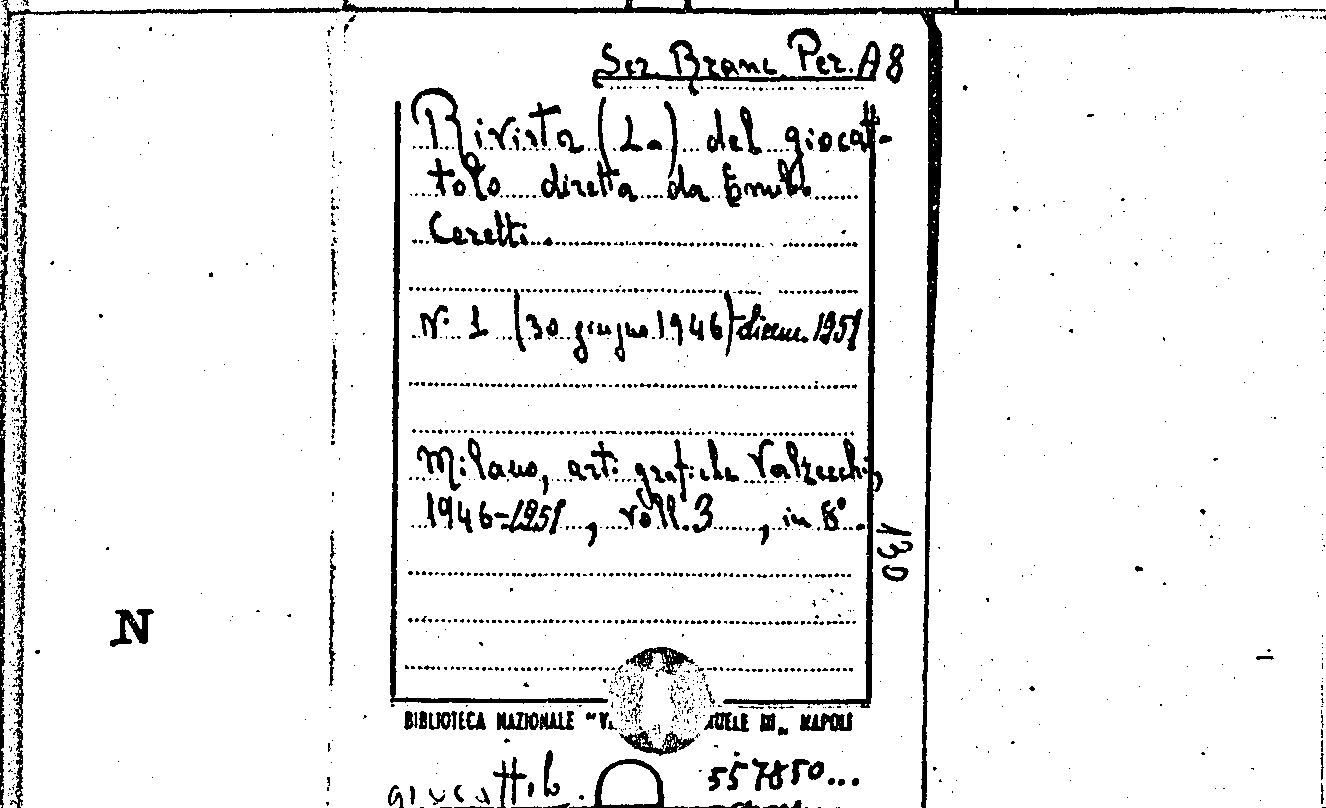 Sez. Branc. Per. A8
Rivista (La) del giocat-
tolo diretta da Emilio
Ceretti.
N. 1 (30 giugno 1946)-dicem. 1951
Milano, arti grafiche Valzecchi,
1946-1951, voll. 3, in 8°.
130
N
BIBLIOTECA NAZIONALE "V UELE III„ NAPOLI
giocattolo. 557850...